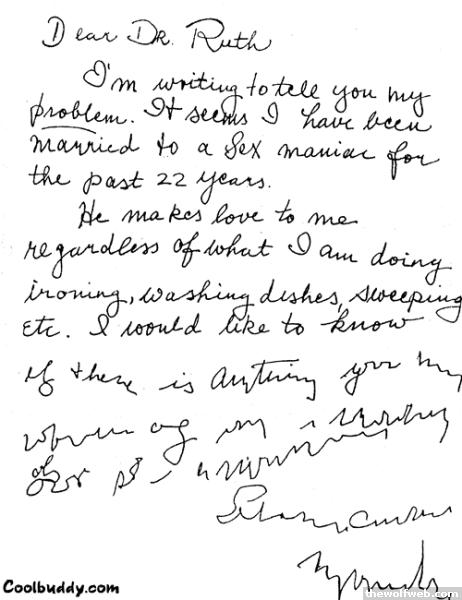 Dear Dr. Ruth
I'm writing to tell you my
problem. It seems I have been
married to a sex maniac for
the past 22 years.
He makes love to me
regardless of what I am doing
ironing, washing dishes, sweeping
etc. I would like to know
if there is anything you
Coolbuddy.com
thewolfweb.com